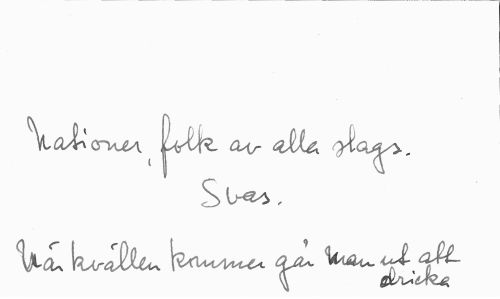 Nationer, folk av alla slags.
Svas.
När kvällen kommer går man ut att
dricka